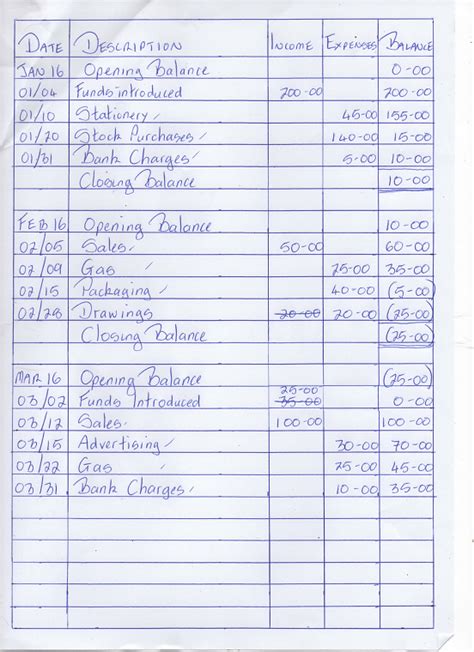 DATE DESCRIPTION INCOME EXPENSES BALANCE
JAN 16 Opening Balance 0-00
01/04 Funds introduced 200-00 200-00
01/10 Stationery 45-00 155-00
01/20 Stock Purchases 140-00 15-00
01/31 Bank Charges 5-00 10-00
Closing Balance 10-00
FEB 16 Opening Balance 10-00
02/05 Sales 50-00 60-00
02/09 Gas 25-00 35-00
02/15 Packaging 40-00 (5-00)
02/28 Drawings 20-00 20-00 (25-00)
Closing Balance (25-00)
MAR 16 Opening Balance (25-00)
25-00
03/02 Funds Introduced 35-00 0-00
03/12 Sales 100-00 100-00
03/15 Advertising 30-00 70-00
03/22 Gas 25-00 45-00
03/31 Bank Charges 10-00 35-00